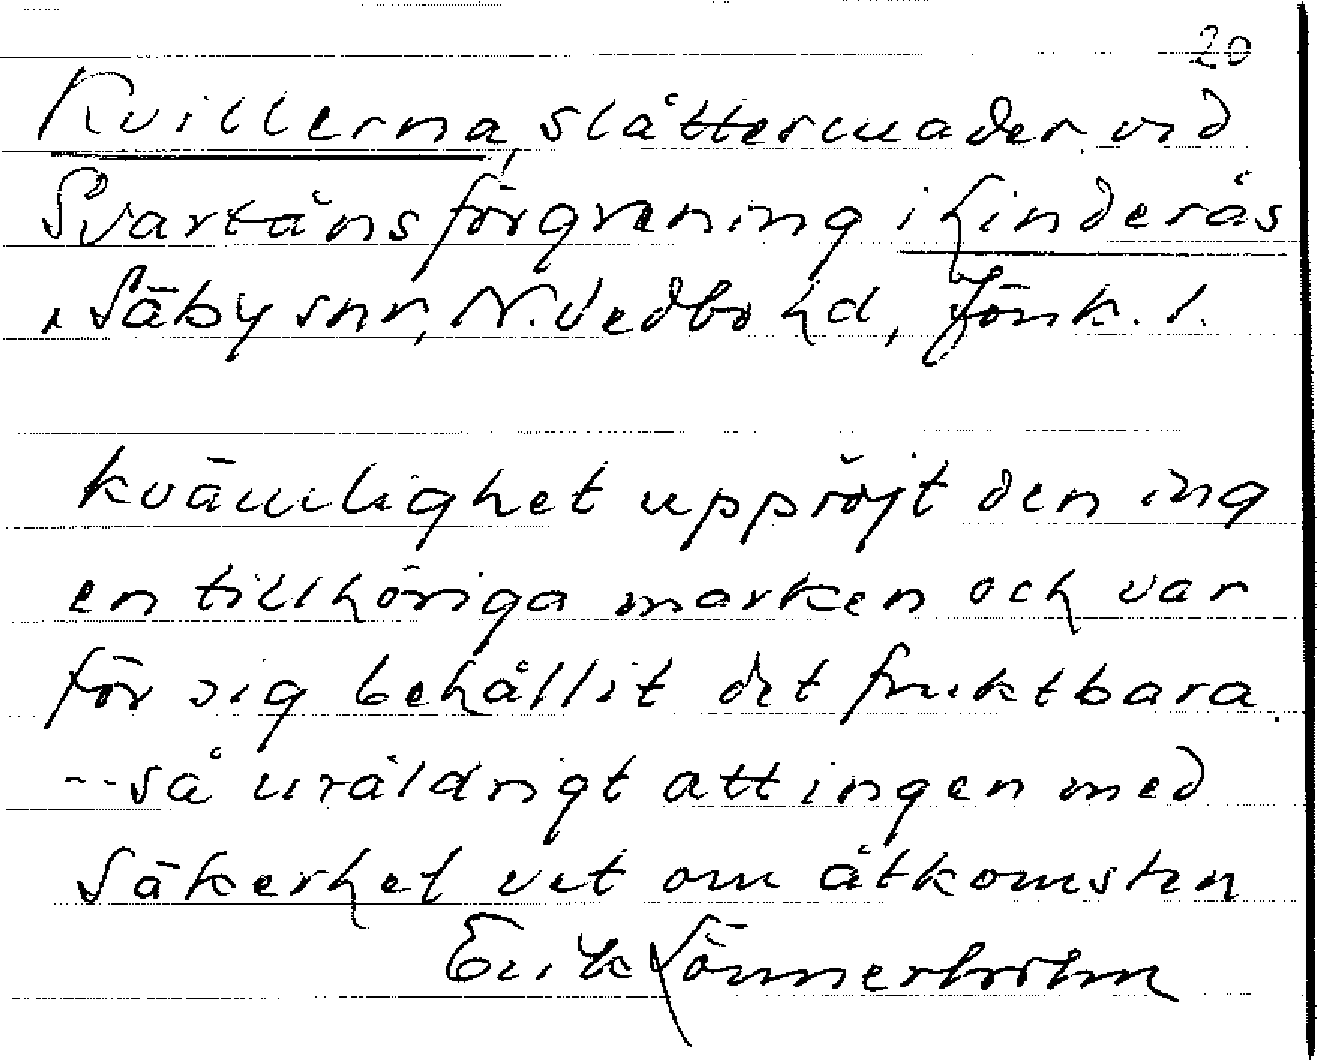 20
Kvillerna, slåttermader vid
Svartåns förgrening i Linderås
i Säby snr, N. Vedbo hd, Jönk. l.
kvämlighet uppröjt den ing
en tillhöriga marken och var
för sig behållit det fruktbara
-- så uråldrigt att ingen med
säkerhet vet om åtkomsten
Erik Lönnerholm